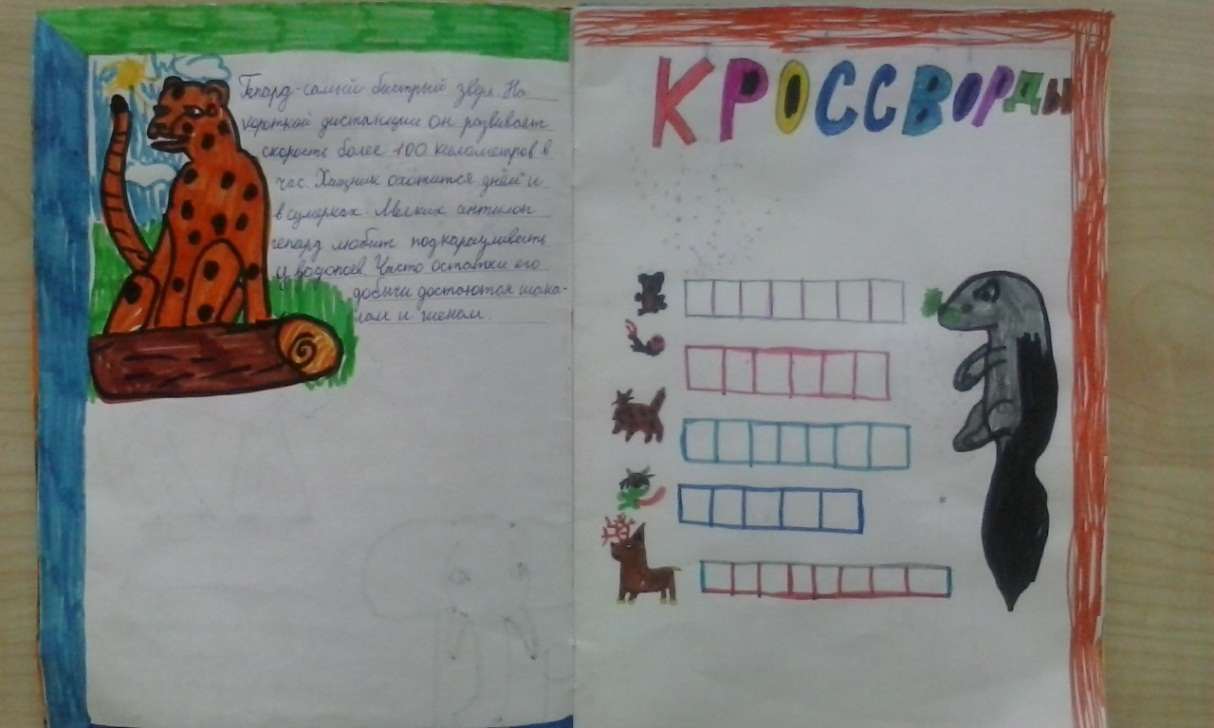 Гепард-самый быстрый зверь. На
короткой дистанции он развивает
скорость более 100 километров в
час. Хищник охотится днём и
в сумерках. Мелких антилоп
гепард любит подкарауливать
у водопоев. Часто остатки его
добычи достаются шака-
лам и гиенам.
КРОССВОРДЫ